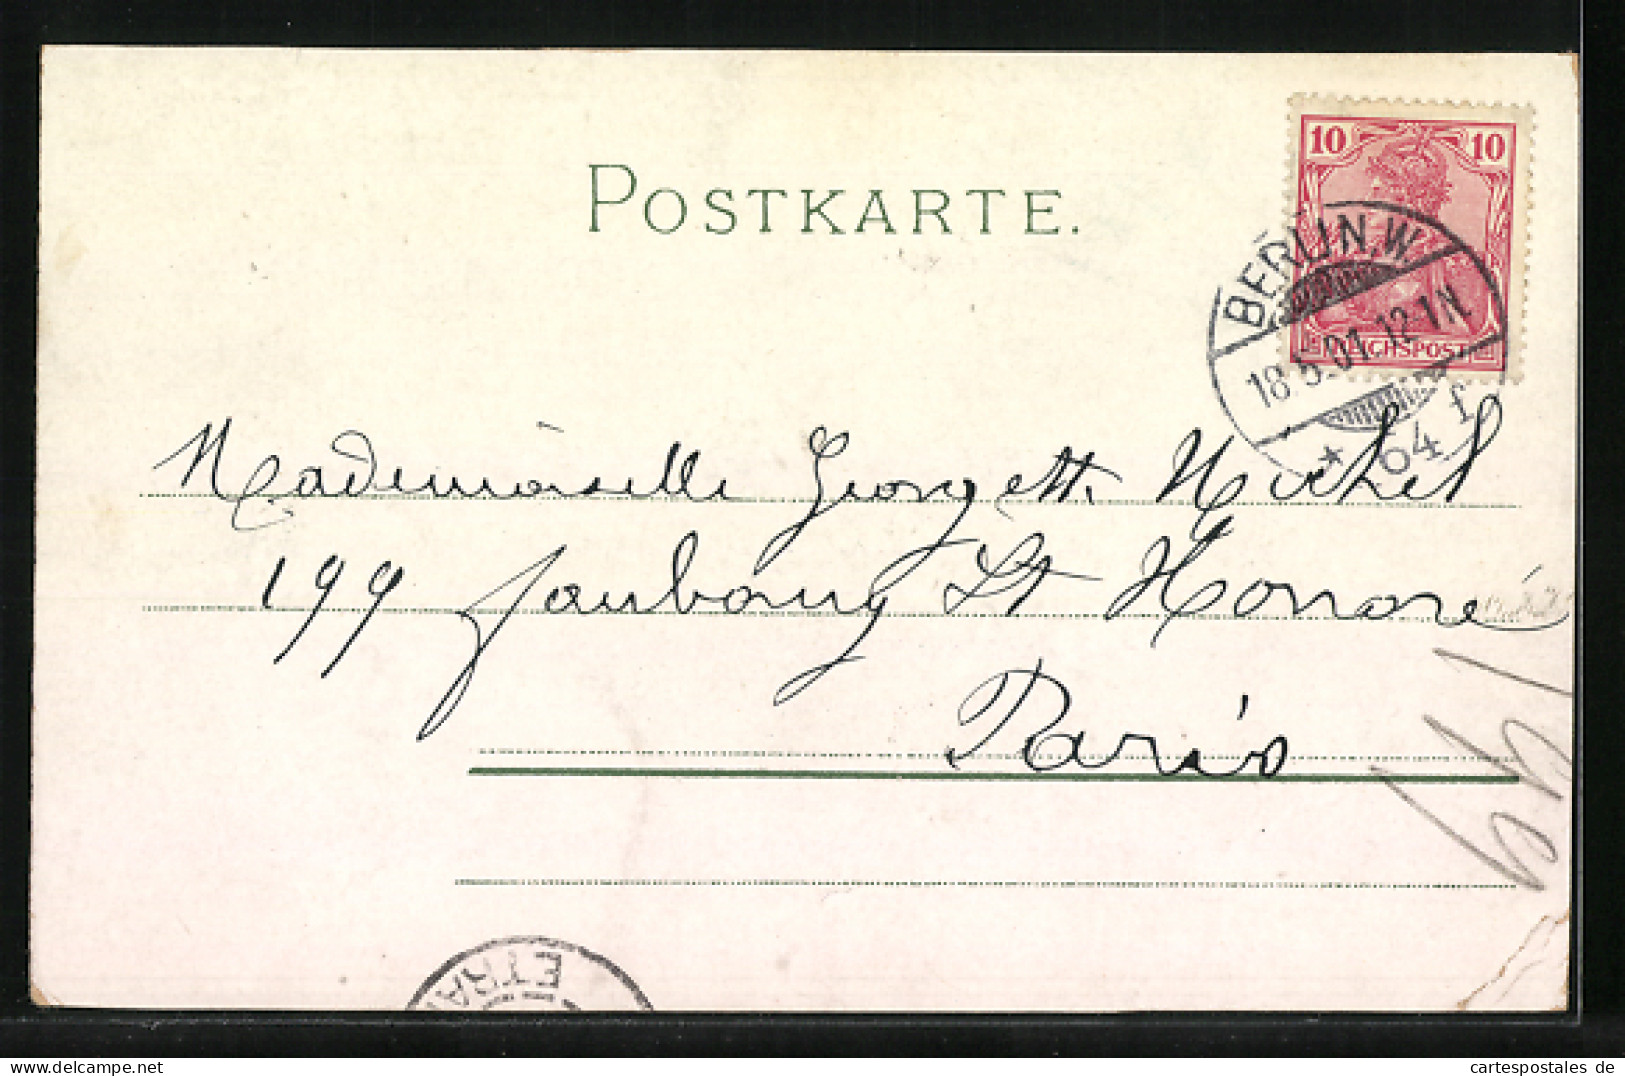 POSTKARTE.
10 10
REICHSPOST
BERLIN, W.
18.5.01.12-1N.
* 64 f
Mademoiselle Georgette Michel
199 faubourg St Honoré
Paris
ETRA
www.cartespostales.de